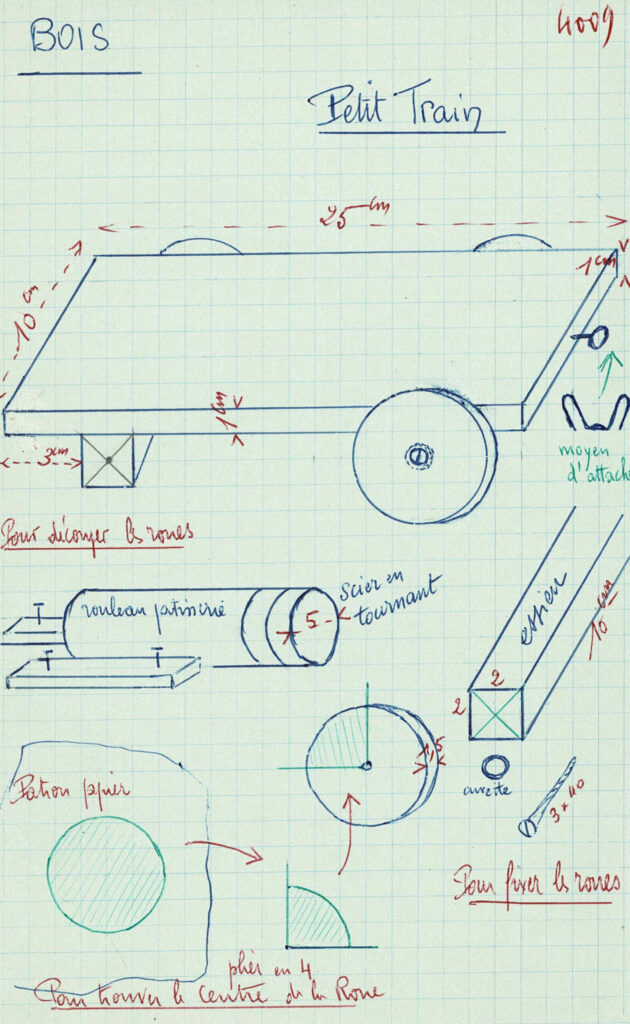 BOIS
4009
Petit Train
25 cm
10 cm
1 cm
1 cm
3 cm
moyen
d'attache
Pour découper les roues
rouleau patisserie
5
scier en
tournant
essieu
10 cm
2
2
1,5
Patron papier
3 x 40
Pour fixer les roues
plier en 4
Pour trouver le centre de la Roue